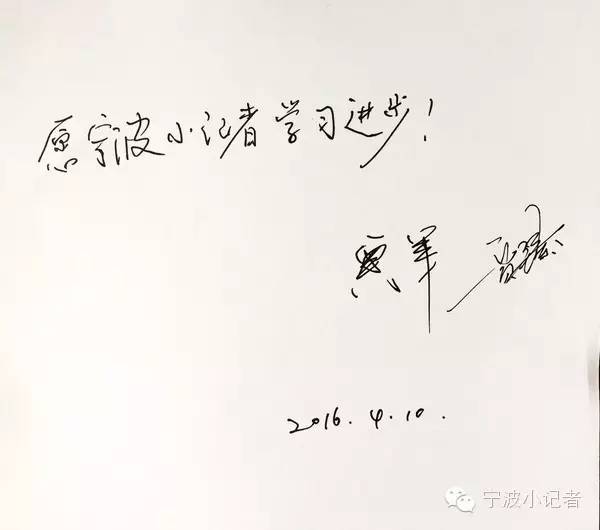 愿宁波小记者学习进步！
贾军
2016.4.10.
宁波小记者